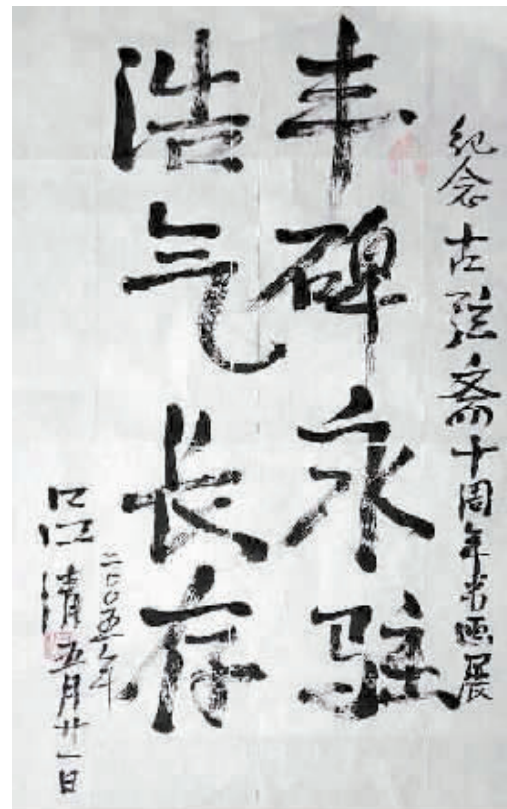 纪念古弦斋十周年书画展
丰碑永驻
浩气长存
二〇〇五年
吕江清五月廿一日